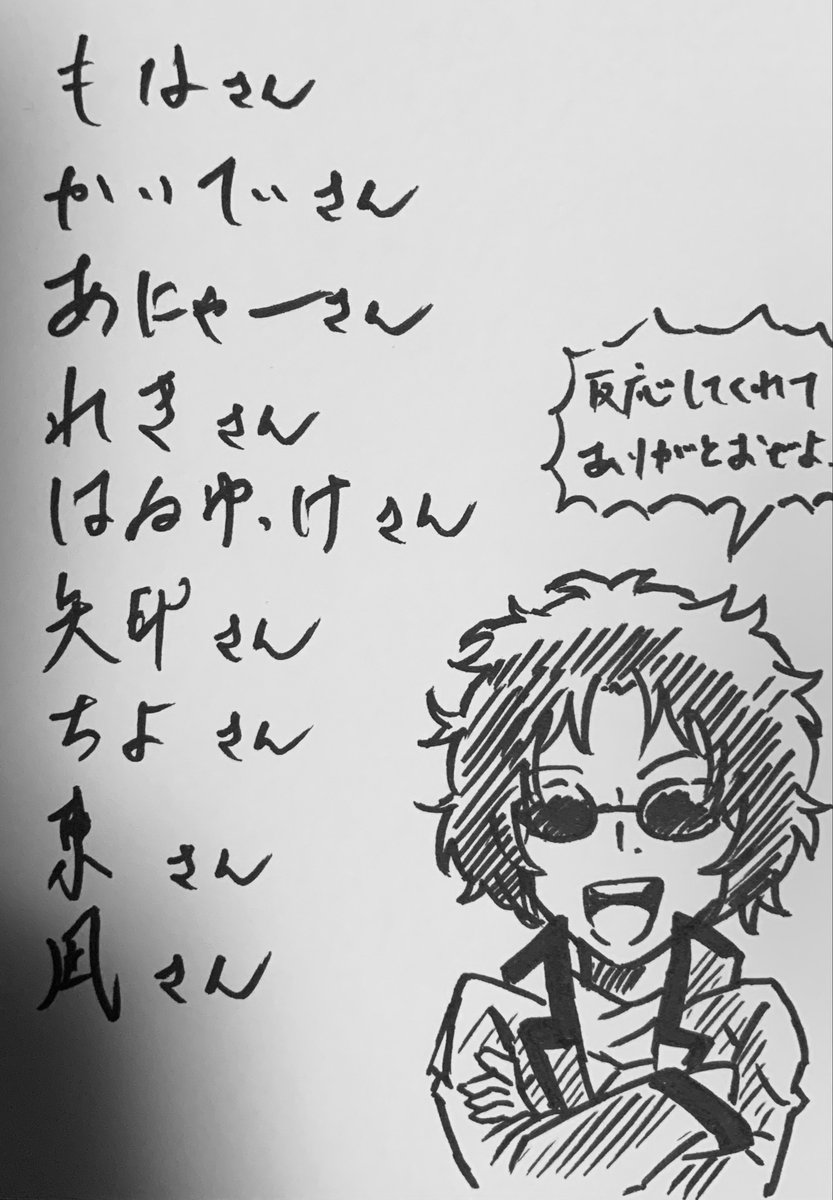 もはさん
かいでぃさん
あにゃーさん
れきさん
はねゆっけさん
矢印さん
ちよさん
東さん
凪さん
反応してくれて
ありがとおぜよ、